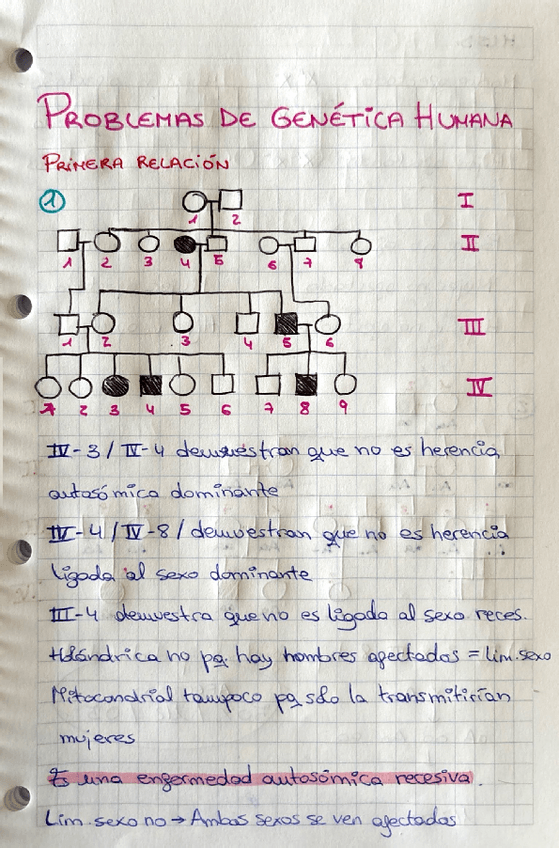 PROBLEMAS DE GENÉTICA HUMANA
PRIMERA RELACIÓN
1
1 2 I
1 2 3 4 5 6 7 8 II
1 2 3 4 5 6 III
1 2 3 4 5 6 7 8 9 IV
IV-3 / IV-4 demuestran que no es herencia
autosómica dominante
IV-4 / IV-8 / demuestran que no es herencia
ligada al sexo dominante
III-4 demuestra que no es ligada al sexo reces.
Holándrica no pq hay hombres afectados = lim.sexo
Mitocondrial tampoco pq sólo la transmitirían
mujeres
Es una enfermedad autosómica recesiva.
Lim. sexo no → Ambos sexos se ven afectados